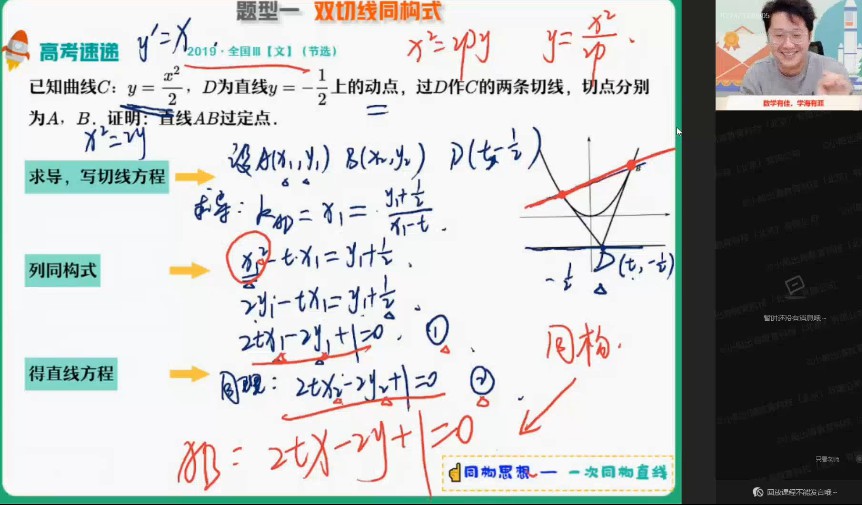 题型一 双切线同构式
高考速递
y'=x
2019·全国Ⅲ【文】（节选）
x²=2py
y=x²/2p.
已知曲线C：y=x²/2，D为直线y=-1/2上的动点，过D作C的两条切线，切点分别
为A，B．证明：直线AB过定点．
x²=2y
求导，写切线方程
设A(x₁,y₁) B(x₂,y₂) D(t,-1/2)
求导：k_AD=x₁=(y₁+1/2)/(x₁-t).
列同构式
x₁²-t·x₁=y₁+1/2.
2y₁-tx₁=y₁+1/2.
2tx₁-2y₁+1=0. ①
得直线方程
同理：2tx₂-2y₂+1=0 ②.
AB：2tx-2y+1=0
同构.
-1/2
D(t,-1/2)
同构思想 — 一次同构直线
数学有佳，学海有涯
暂时还没有消息哦~
只看老师
回放课程不能发言哦~